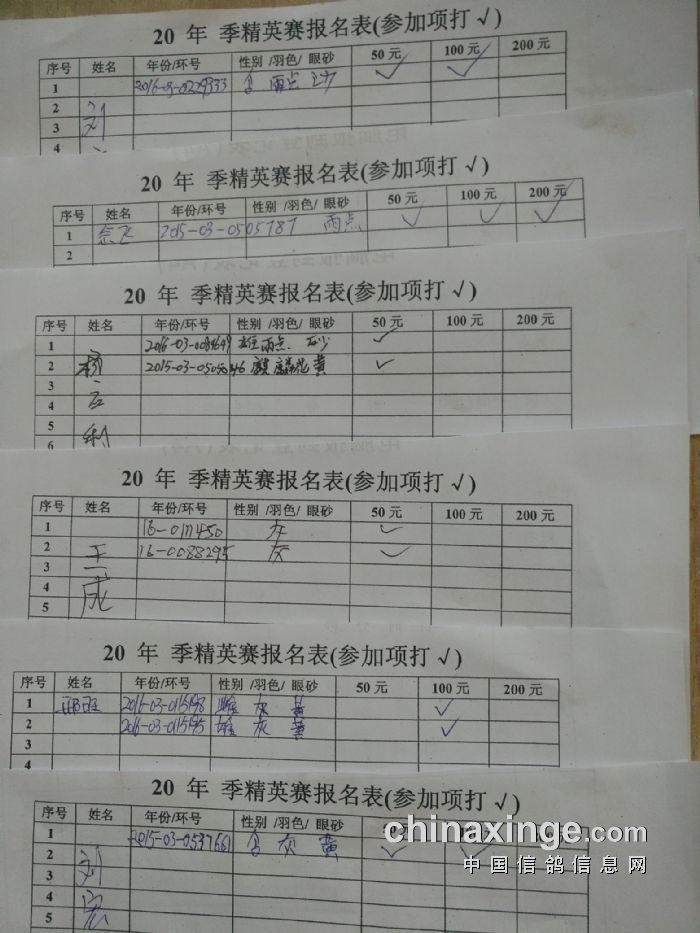 20 年 季精英赛报名表(参加项打 √)
序号 姓名 年份/环号 性别 /羽色/ 眼砂 50 元 100 元 200 元
1 √ √
2 刘
3
4
20 年 季精英赛报名表(参加项打 √)
序号 姓名 年份/环号 性别 /羽色/ 眼砂 50 元 100 元 200 元
1 2015-03-0505787 雨点 √ √ √
2
20 年 季精英赛报名表(参加项打 √)
序号 姓名 年份/环号 性别 /羽色/ 眼砂 50 元 100 元 200 元
1 雨点 √
2 杨 黄 √
3
4
5
6 利
20 年 季精英赛报名表(参加项打 √)
序号 姓名 年份/环号 性别 /羽色/ 眼砂 50 元 100 元 200 元
1 灰 √
2 王 16-0088295 灰 √
3
4
5 成
20 年 季精英赛报名表(参加项打 √)
序号 姓名 年份/环号 性别 /羽色/ 眼砂 50 元 100 元 200 元
1 2016-03-0115198 雌 灰 黄 √
2 2016-03-0115195 雄 灰 黄 √
3
4
20 年 季精英赛报名表(参加项打 √)
序号 姓名 年份/环号 性别 /羽色/ 眼砂
1 2015-03-0537661 灰 黄 √ √
2 刘
3
4 宏
5
chinaxinge.com
中国信鸽信息网